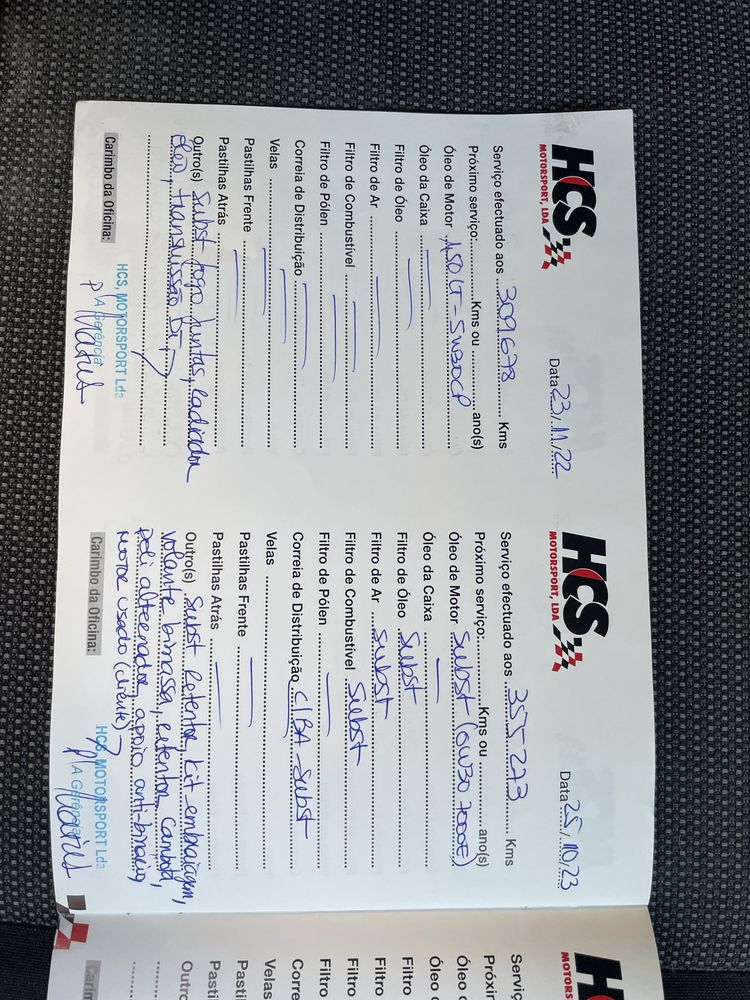 HCS
MOTORSPORT, LDA
Data 23/.11/.22
Serviço efectuado aos 309678 Kms
Próximo serviço: Kms ou ano(s)
Óleo de Motor
Óleo da Caixa
Filtro de Óleo
Filtro de Ar
Filtro de Combustível
Filtro de Pólen
Correia de Distribuição
Velas
Pastilhas Frente
Pastilhas Atrás
Outro(s) Subst Jogo Juntas, Radiador
óleo, transmissão
Carimbo da Oficina:
HCS, MOTORSPORT Lda
A Gerência
HCS
MOTORSPORT, LDA
Data 25/.10/23
Serviço efectuado aos 355 273 Kms
Próximo serviço: Kms ou ano(s)
Óleo de Motor Subst (0W30
Óleo da Caixa
Filtro de Óleo Subst
Filtro de Ar Subst
Filtro de Combustível Subst
Filtro de Pólen
Correia de Distribuição C/BA - Subst
Velas
Pastilhas Frente
Pastilhas Atrás
Outro(s) Subst Retentor, Kit embraiagem,
volante bimassa, retentor cambota,
poli alternador, apoio
motor usado (cliente)
Carimbo da Oficina:
HCS, MOTORSPORT Lda
A Gerência
HCS
MOTOR
Serviç
Próxin
Óleo d
Óleo d
Filtro
Filtro
Filtro
Filtro
Corre
Velas
Pasti
Pasti
Outro
Carin